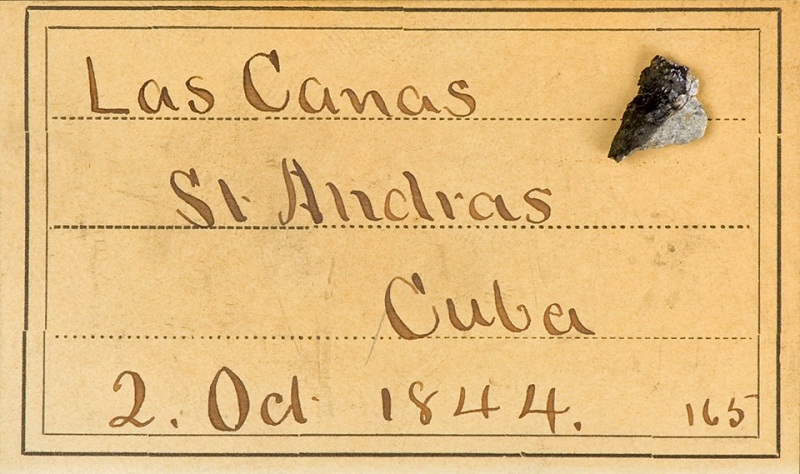 Las Canas
St. Andras
Cuba
2. Oct. 1844. 165